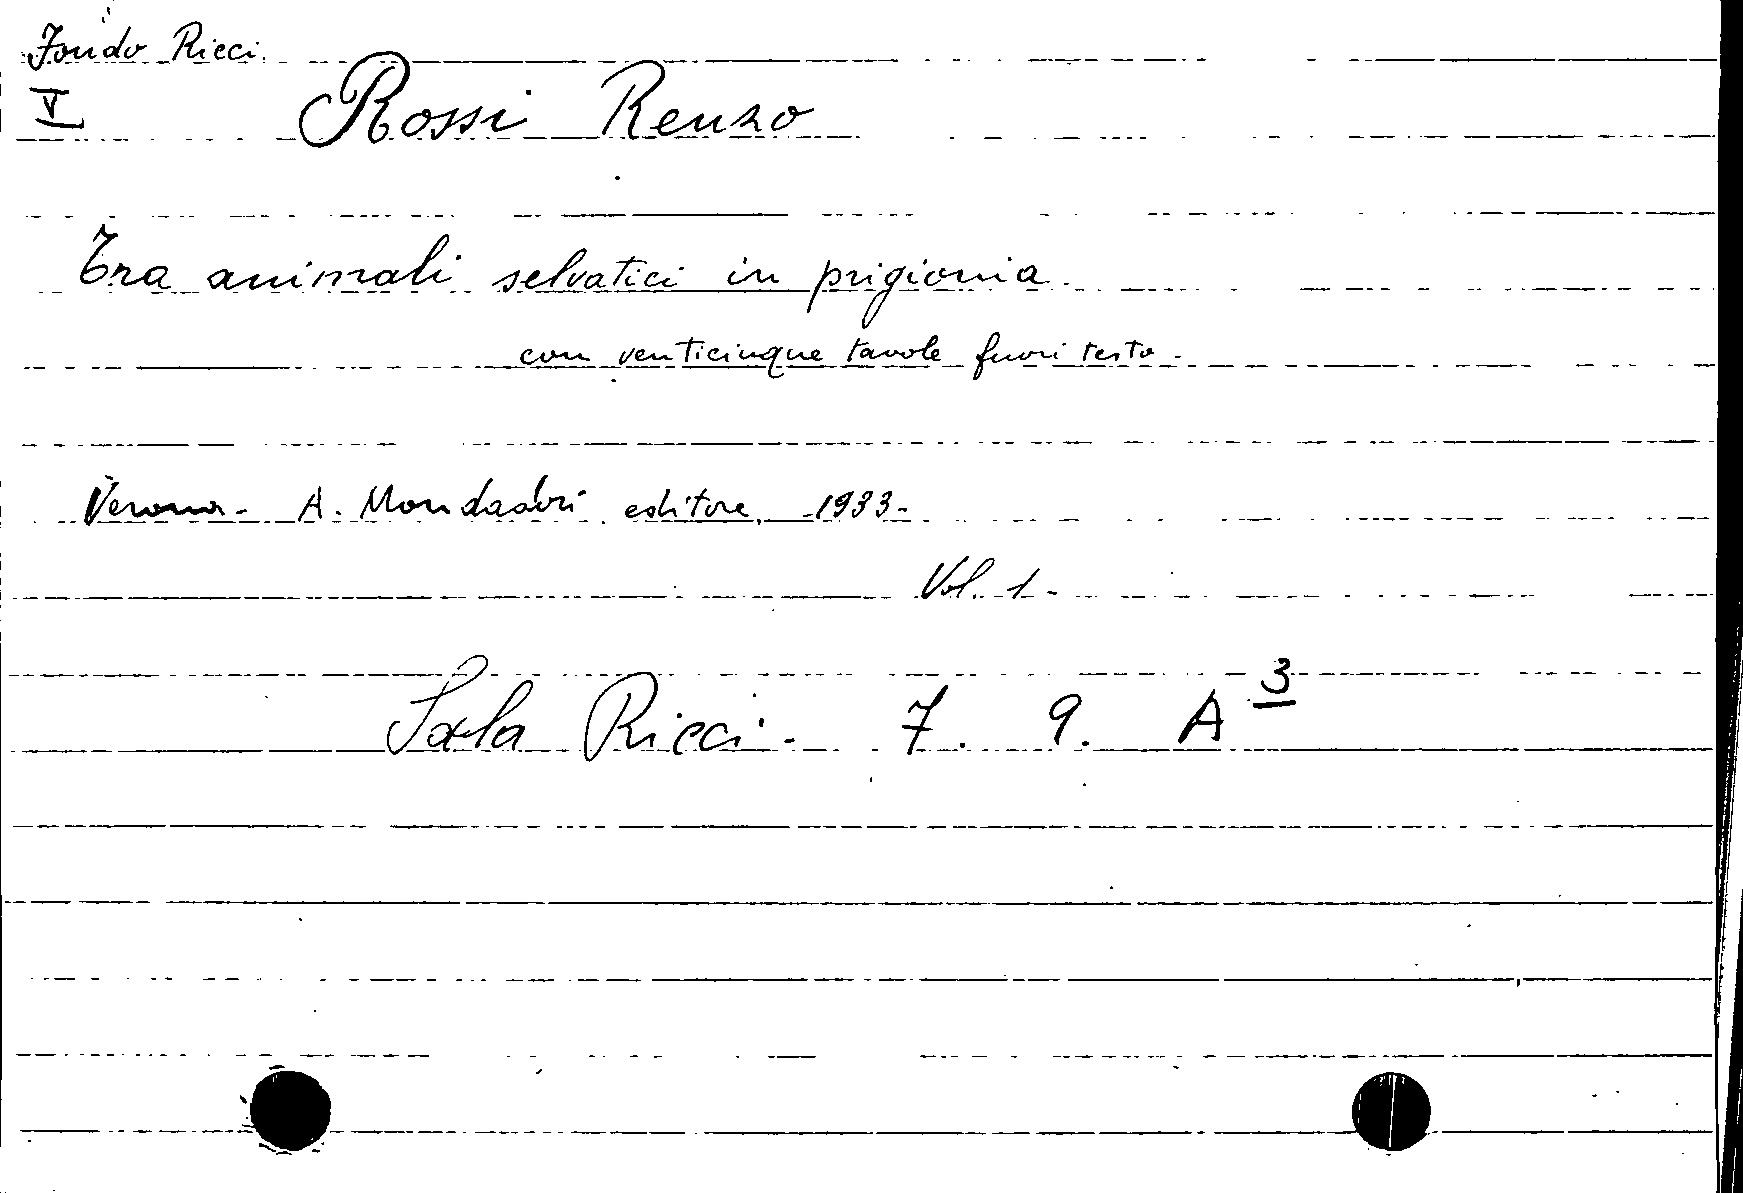 Fondo Ricci.
V Rossi Renzo
Tra animali selvatici in prigionia
con venticinque tavole fuori testo.
Verona - A. Mondadori editore, 1933.
Vol. 1.
Sala Ricci. 7. 9. A 3